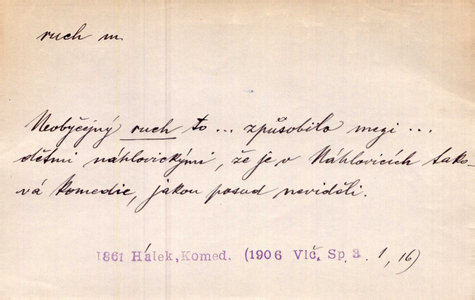 ruch m.
Neobyčejný ruch to ... způsobilo mezi ...
dětmi náhlovickými, že je v Náhlovicích tako-
vá komedie, jakou posud neviděli.
1861 Hálek, Komed. (1906 Vlč. Sp 3. 1, 16)